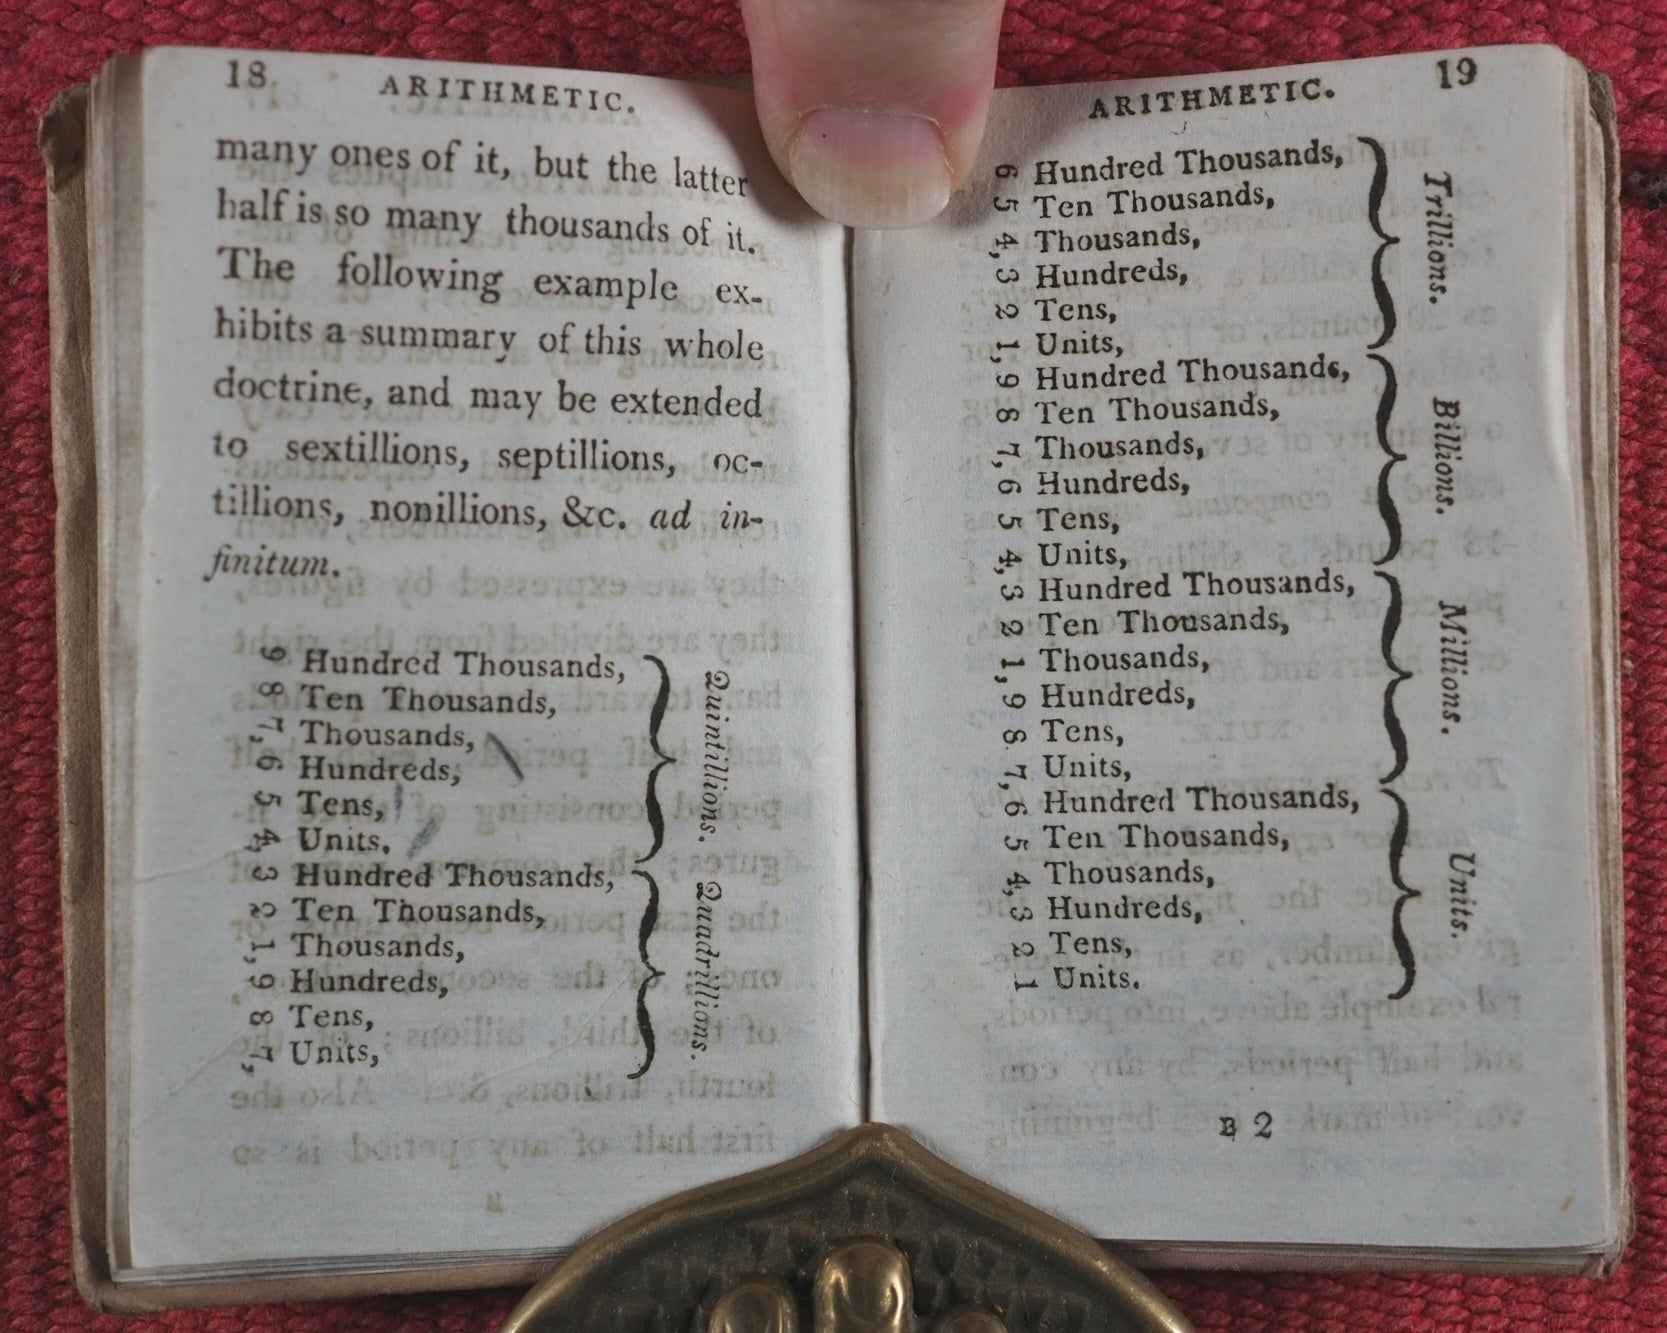 18
ARITHMETIC.
many ones of it, but the latter
half is so many thousands of it.
The following example ex-
hibits a summary of this whole
doctrine, and may be extended
to sextillions, septillions, oc-
tillions, nonillions, &c. ad in-
finitum.
9 Hundred Thousands,
8 Ten Thousands,
7, Thousands,
6 Hundreds,
5 Tens,
4, Units,
Quintillions.
3 Hundred Thousands,
2 Ten Thousands,
1, Thousands,
9 Hundreds,
8 Tens,
7, Units,
Quadrillions.
ARITHMETIC.
19
6 Hundred Thousands,
5 Ten Thousands,
4, Thousands,
3 Hundreds,
2 Tens,
1, Units,
Trillions.
9 Hundred Thousands,
8 Ten Thousands,
7, Thousands,
6 Hundreds,
5 Tens,
4, Units,
Billions.
3 Hundred Thousands,
2 Ten Thousands,
1, Thousands,
9 Hundreds,
8 Tens,
7, Units,
Millions.
6 Hundred Thousands,
5 Ten Thousands,
4, Thousands,
3 Hundreds,
2 Tens,
1 Units.
Units.
B 2